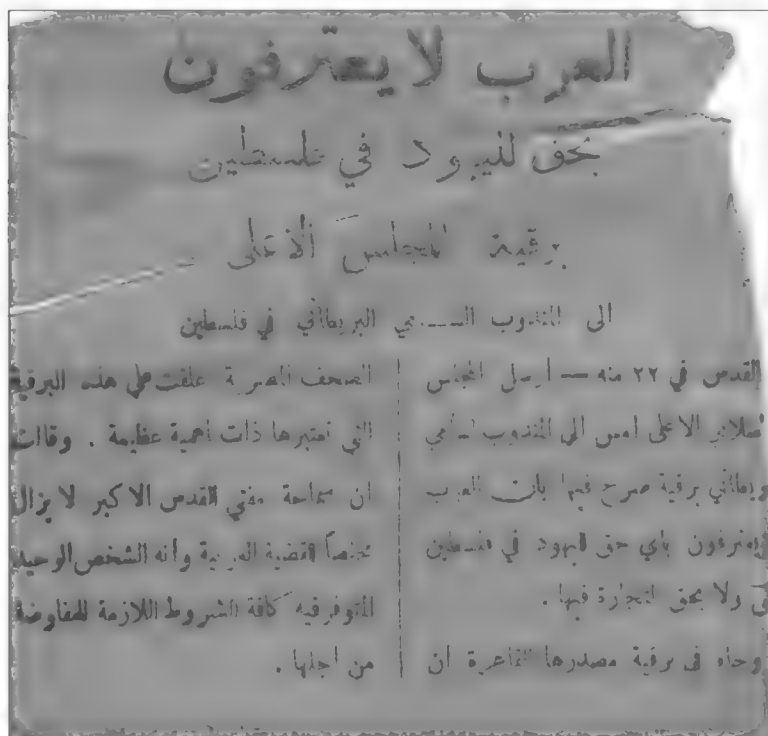 العرب لا يعترفون
بحق لليهود في فلسطين
برقية المجلس الأعلى
الى المندوب السامي البريطاني في فلسطين
القدس في ٢٢ منه — أرسل المجلس
الاعلى امس الى المندوب السامي
برقية صرح فيها بان العرب
بأي حق لليهود في فلسطين
ولا بحق التجارة فيها .
وجاء فى برقية مصدرها القاهرة ان
الصحف المصرية علقت على هذه البرقية
التي تعتبرها ذات اهمية عظيمة . وقالت
ان سماحة مفتي القدس الاكبر لا يزال
مخلصاً للقضية العربية وأنه الشخص الوحيد
المتوفرفيه كافة الشروط اللازمة للمفاوضة
من اجلها .